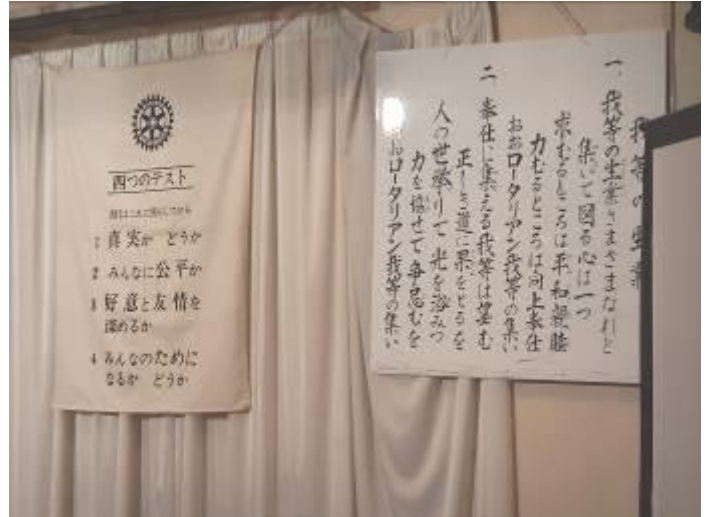 四つのテスト
1 真実か どうか
2 みんなに公平か
3 好意と友情を
深めるか
4 みんなのために
なるか どうか
我等の生業
一、我等の生業さまざまなれど
集いて図る心は一つ
求むるところは平和親睦
力むるところは向上奉仕
おおロータリアン我等の集い
二、奉仕に集える我等は望む
正しき道に果をとるを
人の世挙りて光を浴みつ
力を協せて争忌むを
おロータリアン我等の集い